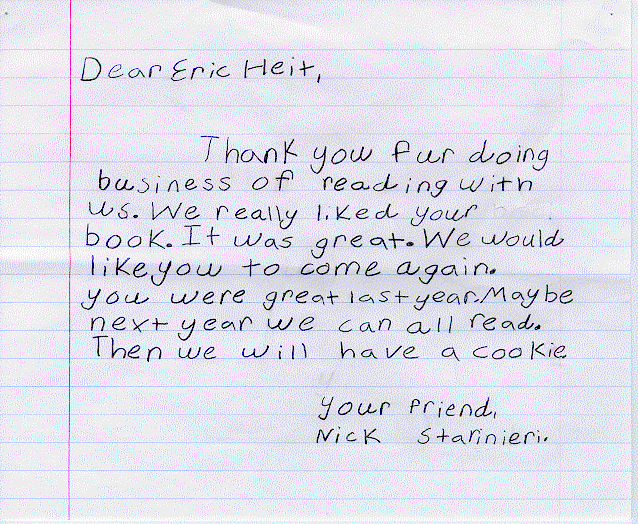 Dear Eric Heit,
Thank you fur doing
business of reading with
us. We really liked your
book. It was great. We would
like you to come again.
you were great last year. Maybe
next year we can all read.
Then we will have a cookie.
your friend,
Nick Starinieri.